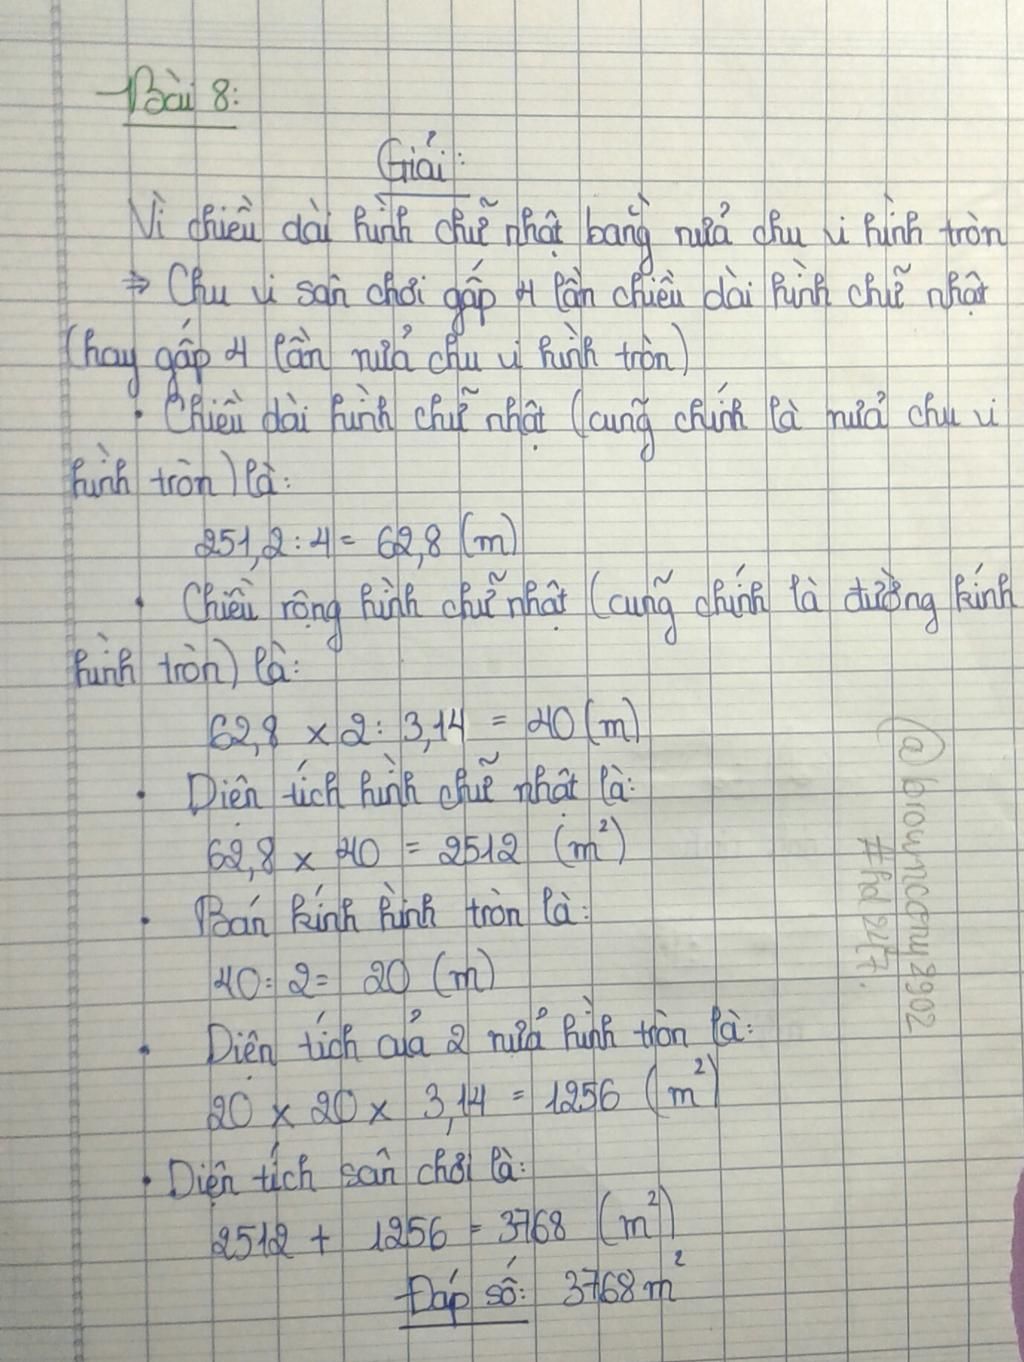 Bài 8:
Giải:
Vì chiều dài hình chữ nhật bằng nửa chu vi hình tròn
⇒ Chu vi sân chơi gấp 4 lần chiều dài hình chữ nhật
(hay gấp 4 lần nửa chu vi hình tròn)
• Chiều dài hình chữ nhật (cũng chính là nửa chu vi
hình tròn) là:
251,2 : 4 = 62,8 (m)
• Chiều rộng hình chữ nhật (cũng chính là đường kính
hình tròn) là:
62,8 x 2 : 3,14 = 40 (m)
• Diện tích hình chữ nhật là:
62,8 x 40 = 2512 (m²)
• Bán kính hình tròn là:
40 : 2 = 20 (m)
• Diện tích của 2 nửa hình tròn là:
20 x 20 x 3,14 = 1256 (m²)
• Diện tích sân chơi là:
2512 + 1256 = 3768 (m²)
Đáp số: 3768 m²
@browncony2902
#hd247.